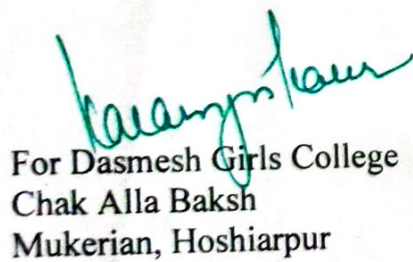 For Dasmesh Girls College
Chak Alla Baksh
Mukerian, Hoshiarpur